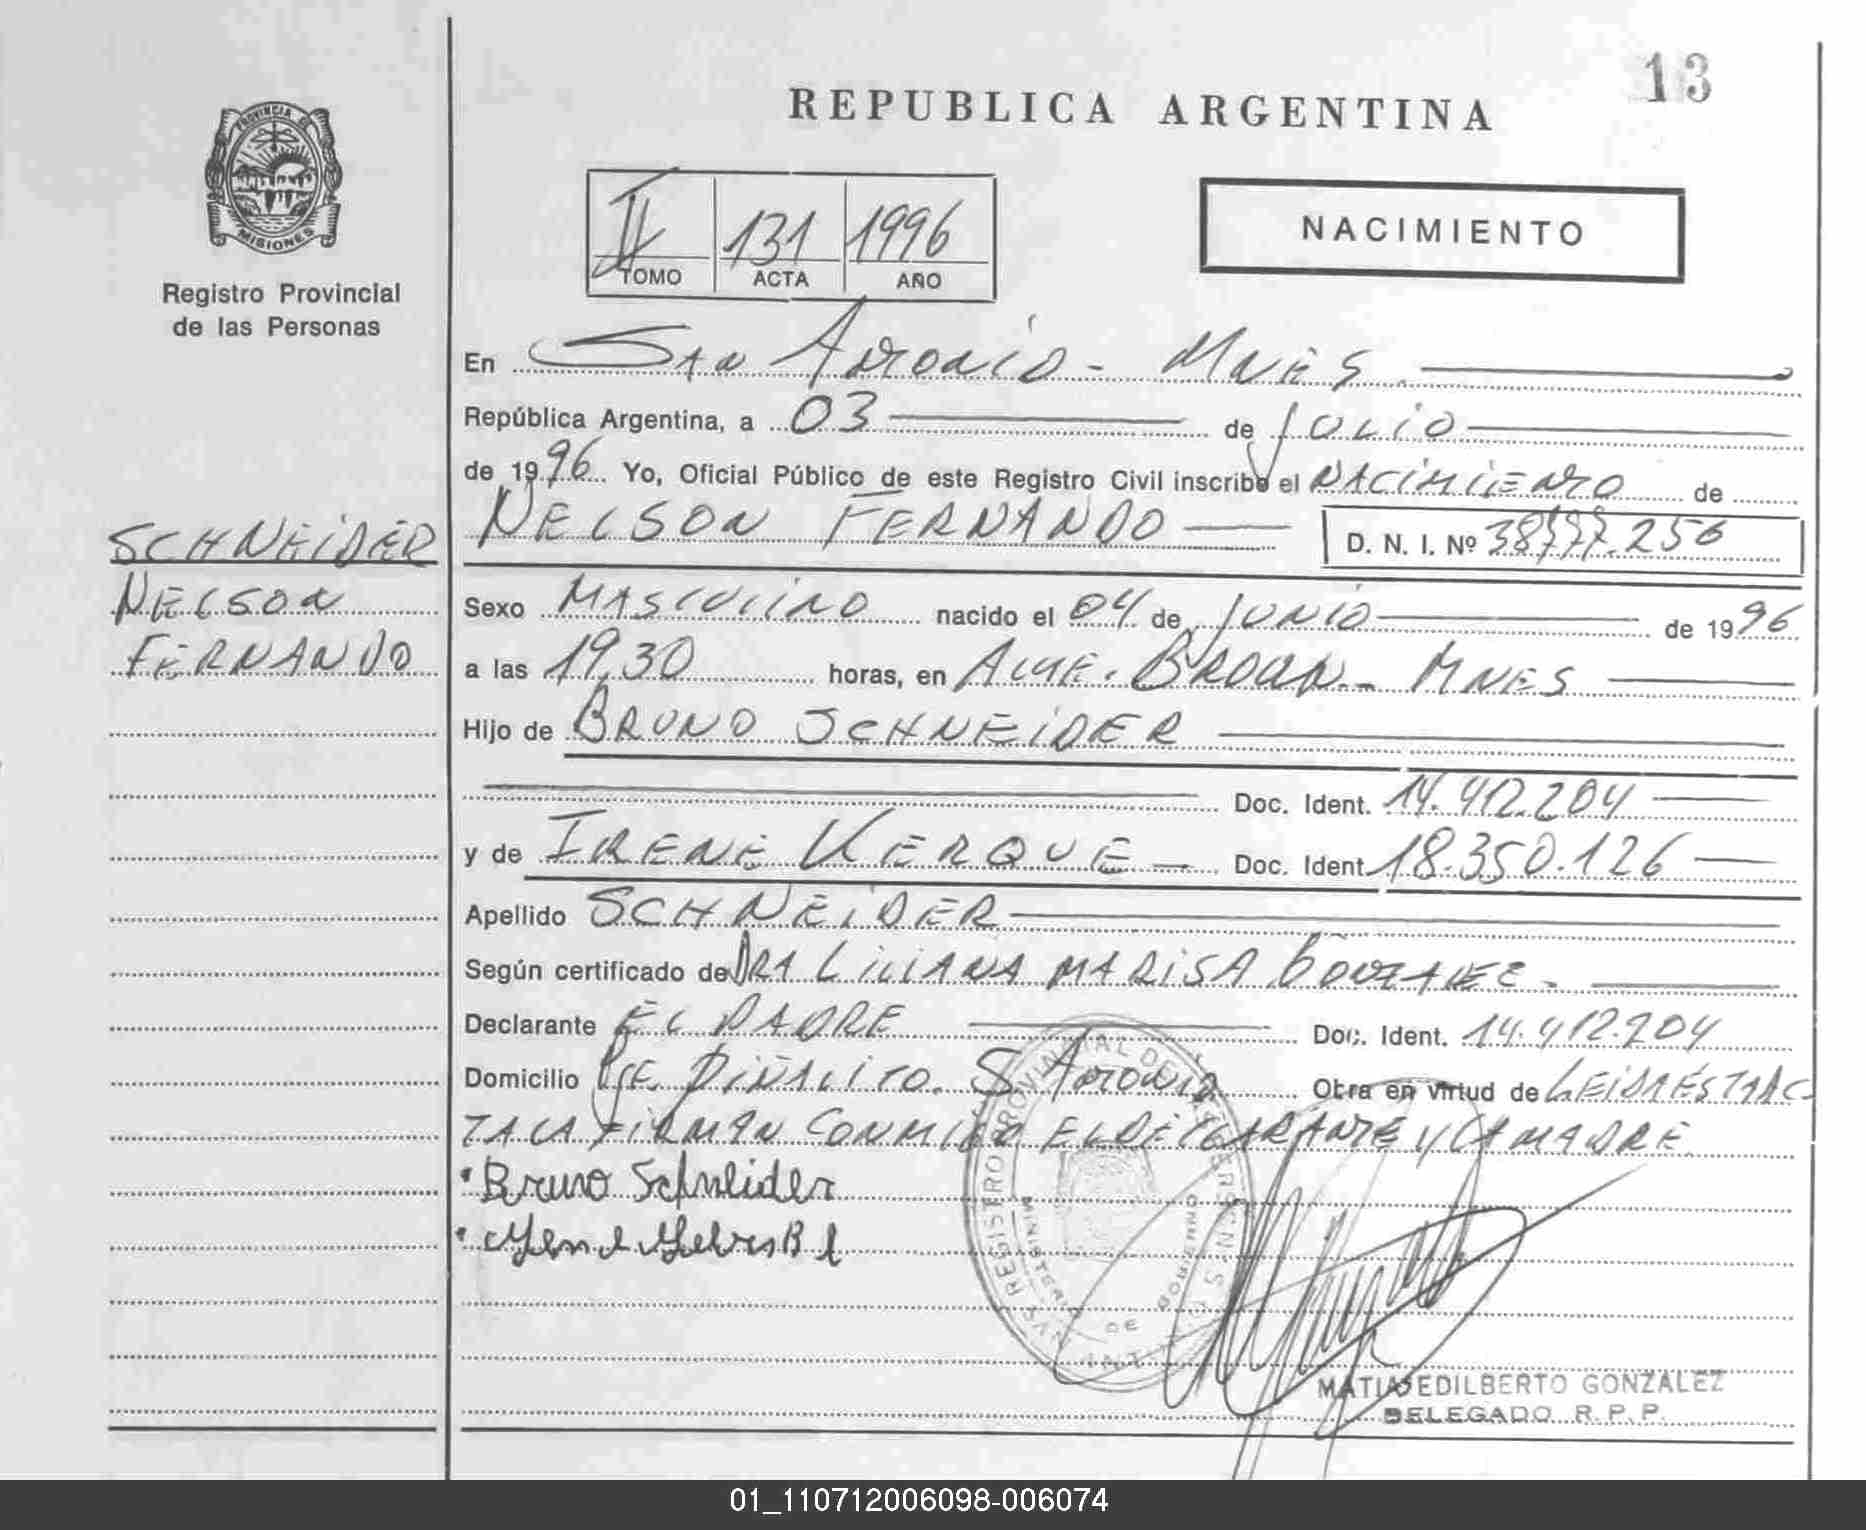 13
REPUBLICA ARGENTINA
PROVINCIA DE
MISIONES
Registro Provincial
de las Personas
II 131 1996
TOMO ACTA AÑO
NACIMIENTO
En San Antonio - Mnes.
República Argentina, a 03 de Julio
de 1996 Yo, Oficial Público de este Registro Civil inscribo el NACIMIENTO de
NELSON FERNANDO D. N. I. Nº 256
SCHNEIDER
NELSON
FERNANDO
Sexo MASCULINO nacido el 04 de JUNIO de 1996
a las 19,30 horas, en ALTE. BROWN - MNES
Hijo de BRUNO SCHNEIDER
Doc. Ident. 14.412.204
y de IRENE KERQUE Doc. Ident 18.350.126
Apellido SCHNEIDER
Según certificado de DRA LILIANA MARISA GONZALEZ.
Declarante EL PADRE Doc. Ident. 14.412.204
Domicilio PJE PIÑALITO. S. ANTONIO Otra en virtud de LEIDA ESTA AC-
TA LA FIRMAN CONMIGO EL DECLARANTE Y LA MADRE.
Bruno Schneider
REGISTRO PROVINCIAL DE LAS PERSONAS
MINISTERIO DE GOBIERNO
MATIAS EDILBERTO GONZALEZ
DELEGADO R.P.P.
01_110712006098-006074